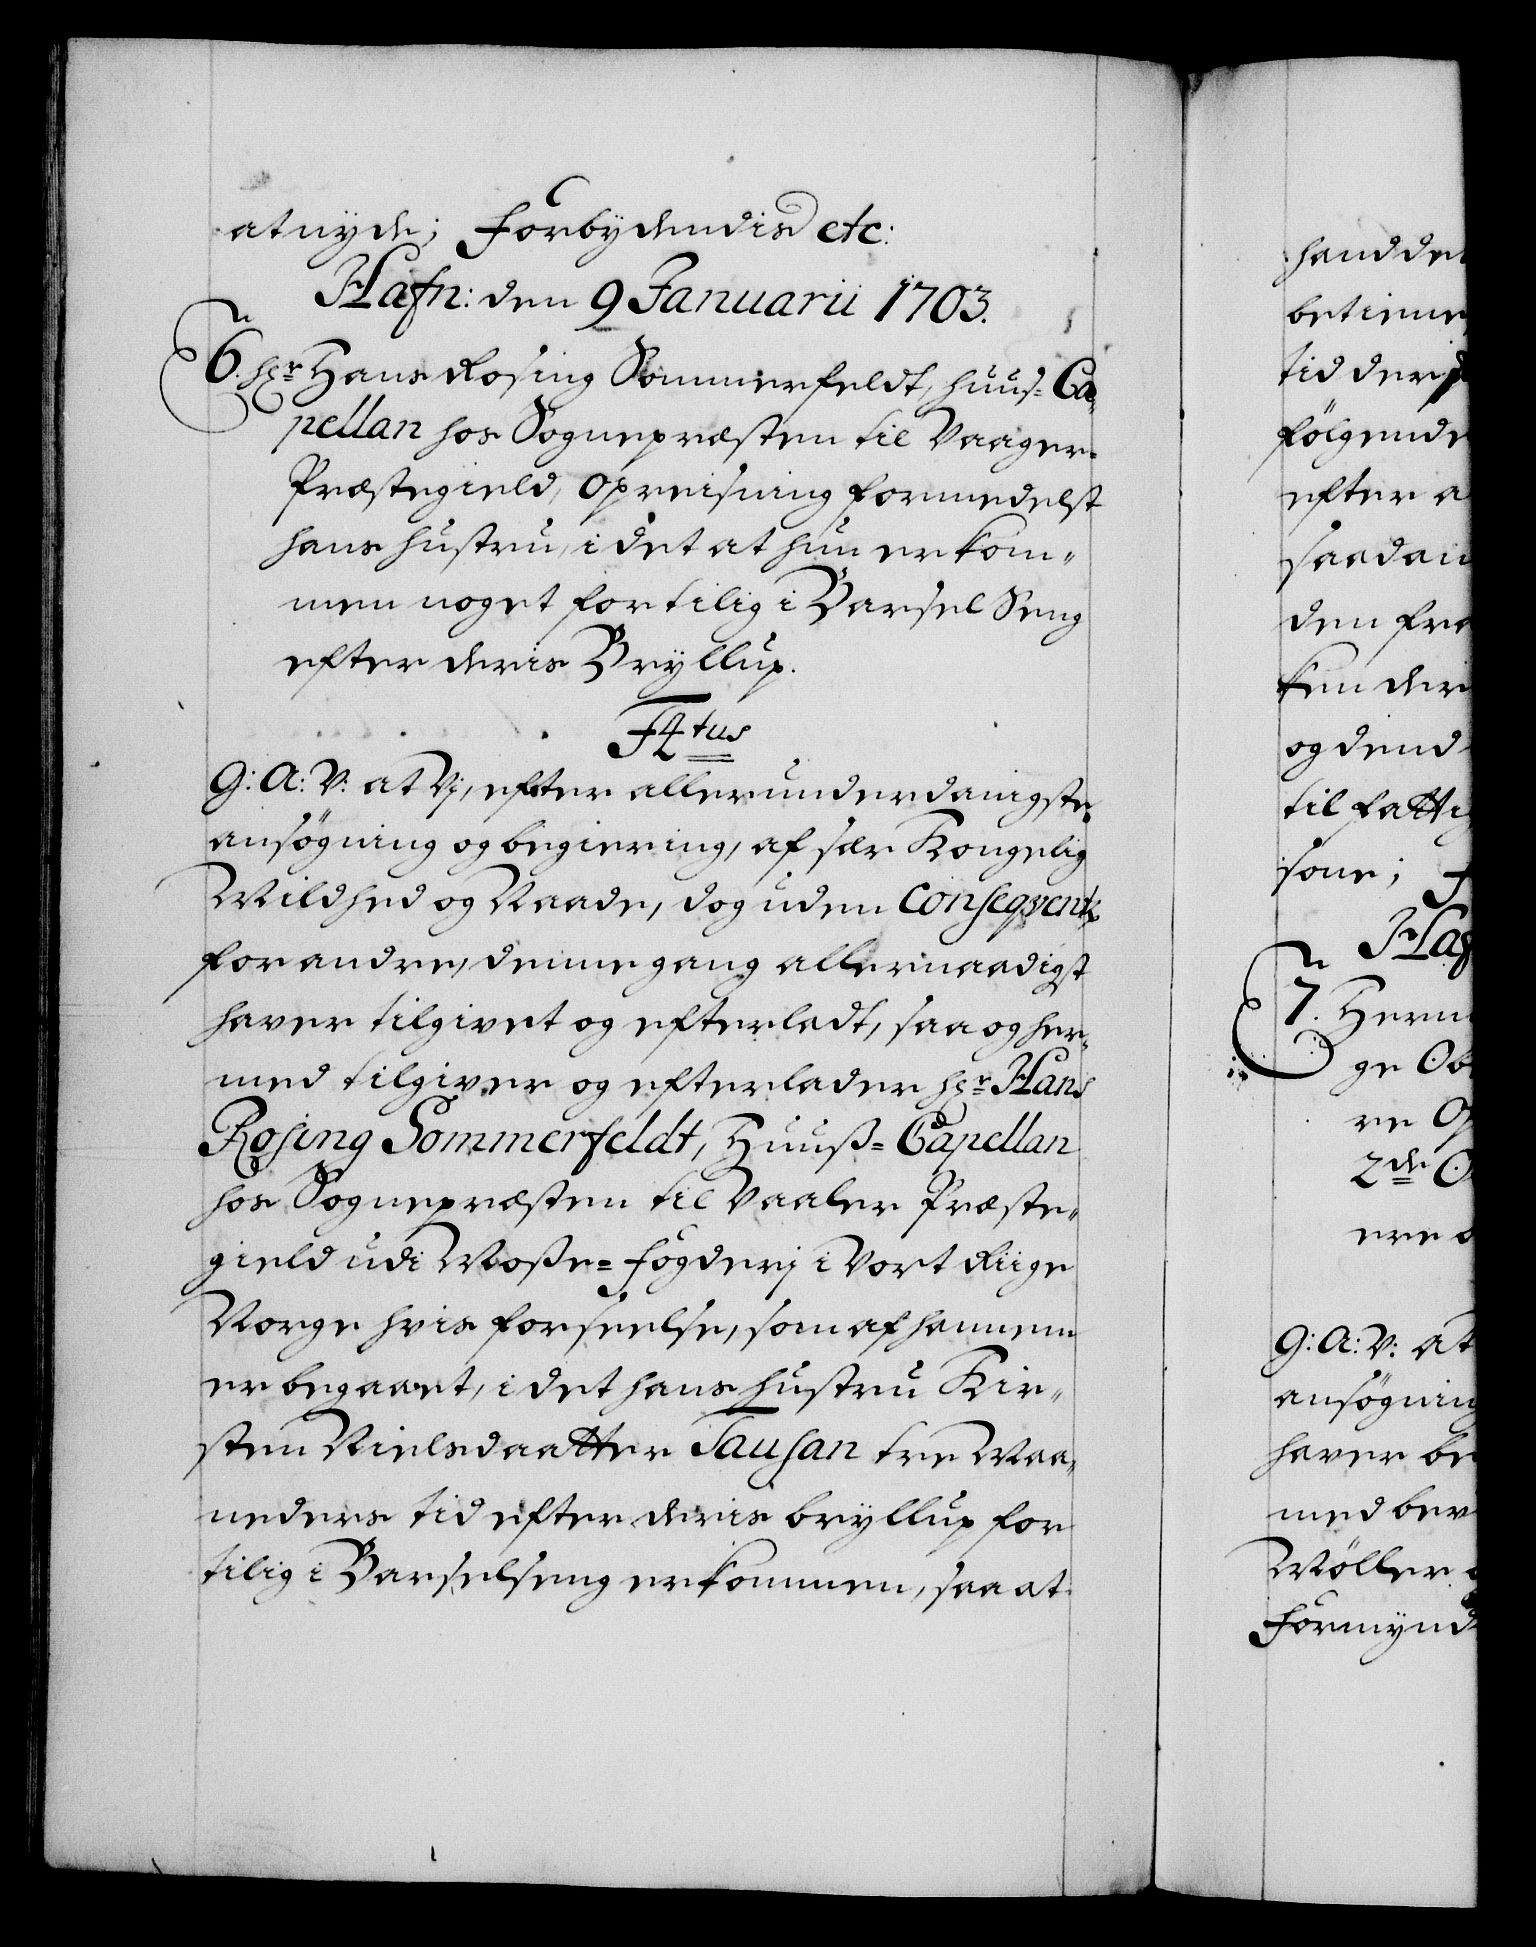 at nyde; Forbydendis etc:
Hafn: den 9 Januarii 1703.
6. Hr Hans Rosing Sommerfeldt, huus-Ca-
pellan hos Sognepræsten til Vaager-
Præstegield, Opreisning formedelst
hans hustru, i det at hun er kom-
men noget for tilig i Barsel Seng
efter deris Bryllup.
F4tus
G: A: V: at Vj, efter allerunderdanigste
ansøgning og begiering, af sær Kongelig
Mildhed og Naade, dog uden Conseqvents
for andre, denne gang allernaadigst
haver tilgivet og efterladt, saa og her-
med tilgiver og efterlader Hr Hans
Rosing Sommerfeldt, Huuß-Capellan
hos Sognepræsten til Vaaler Præste-
gield udi Moße-fogderj i Vort Riige
Norge hvis forseelse, som af hannem
er begaaet, i det hans hustru Kir-
sten Nielsdaatter Tausan tre Maa-
neders tid efter deris bryllup for
tilig i Barselseng er kommen, saa at
hand det
betienne
tid der
følgende
efter a
saadan
den fra
ken der
og dend
til fatti
sone; F
Haf
7. Herm
ge Ob
re O
2de O
ere
G: A: V: at
ansøgning
haver be
med bev
Møller
Formynd